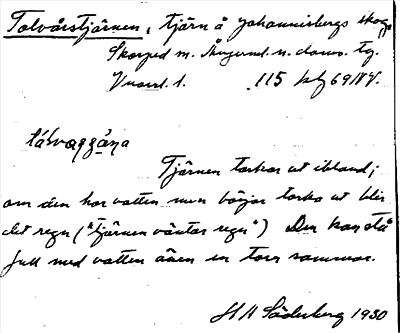 Tolvårstjärnen, tjärn å Johannisbergs skog
Skorped m. Ångerml. n. doms. tg.
115
Tjärnen torkar ut ibland;
om den har vatten men börjar torka ut blir
det regn ("tjärnen väntar regn") Den kan stå
full med vatten även en torr sommar.
H H Söderberg 1930